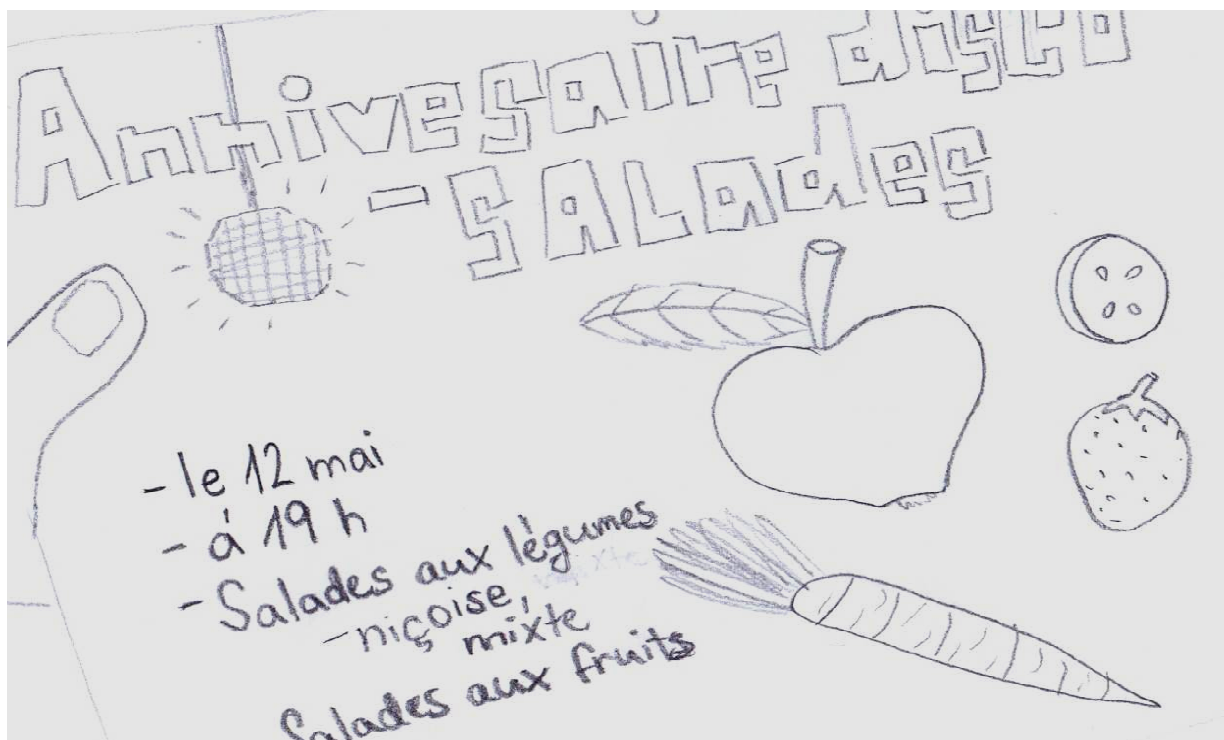 Annivesaire disco
- SALades
- le 12 mai
- á 19 h
- Salades aux légumes
- niçoise,
mixte
Salades aux fruits